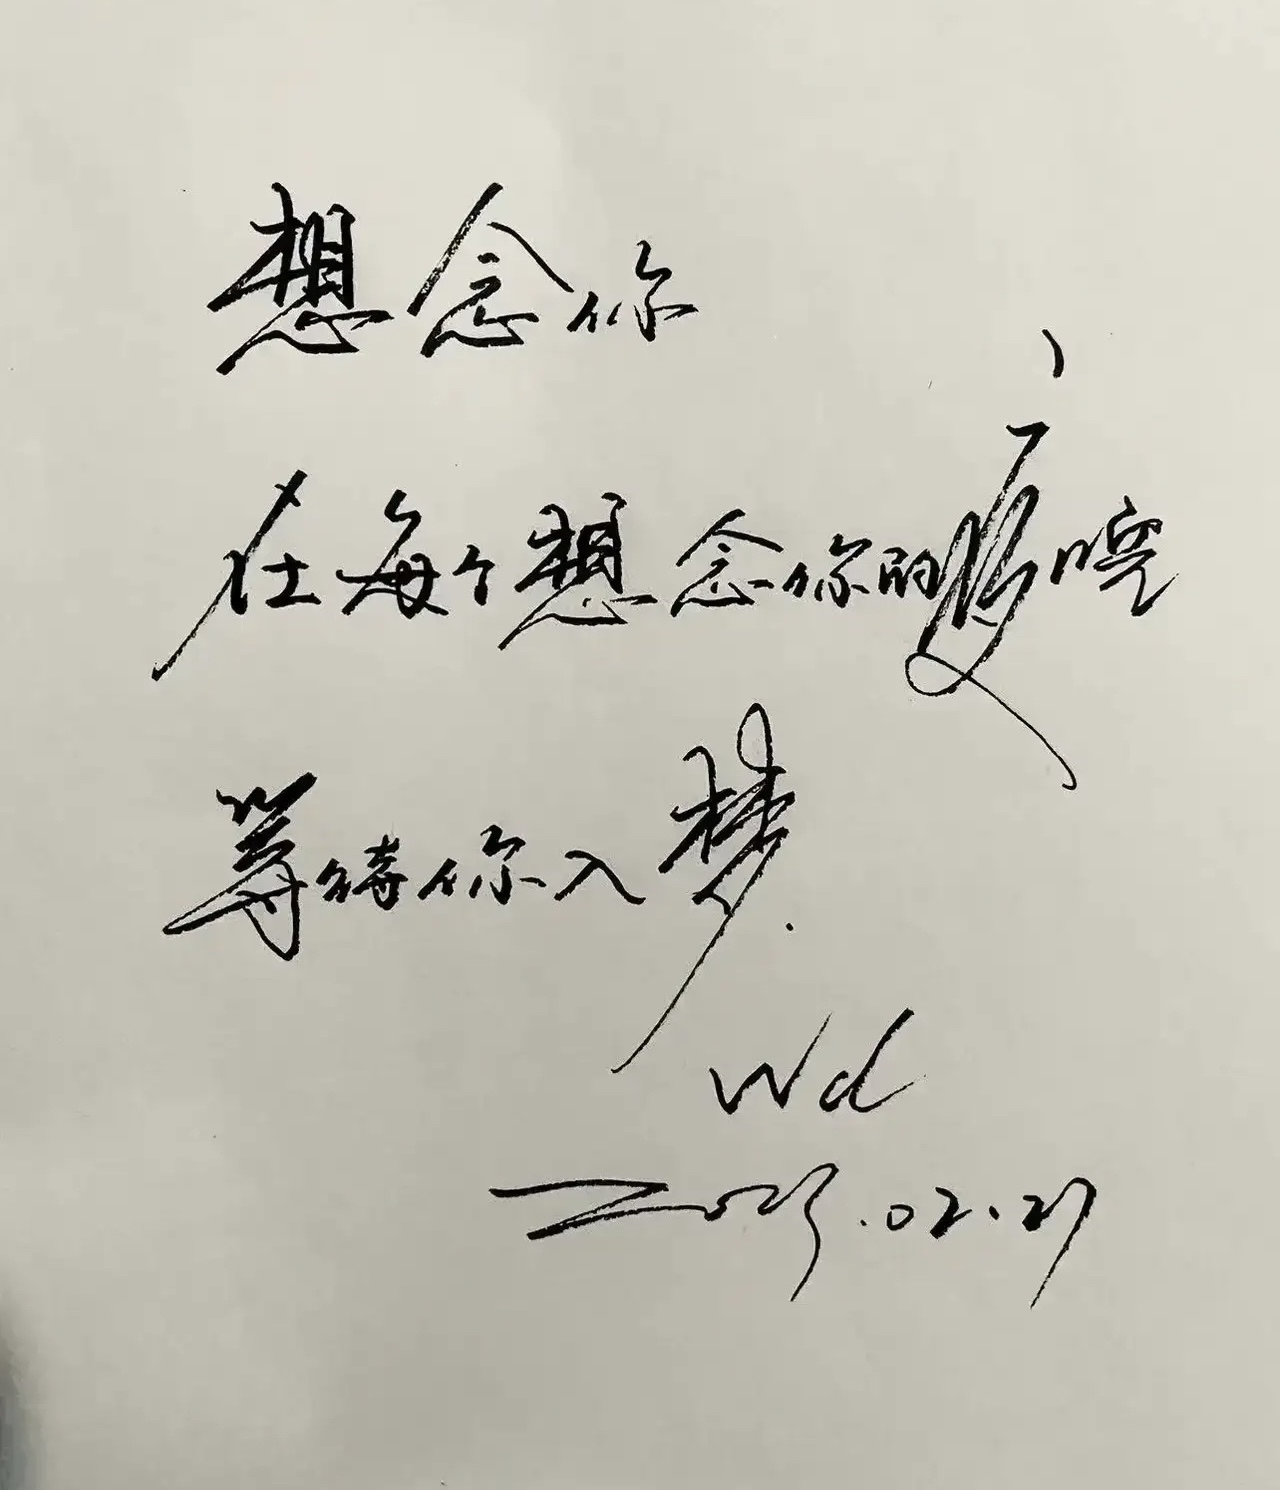 想念你
在每个想念你的夜晚
等待你入梦.
Wd
2023.02.27